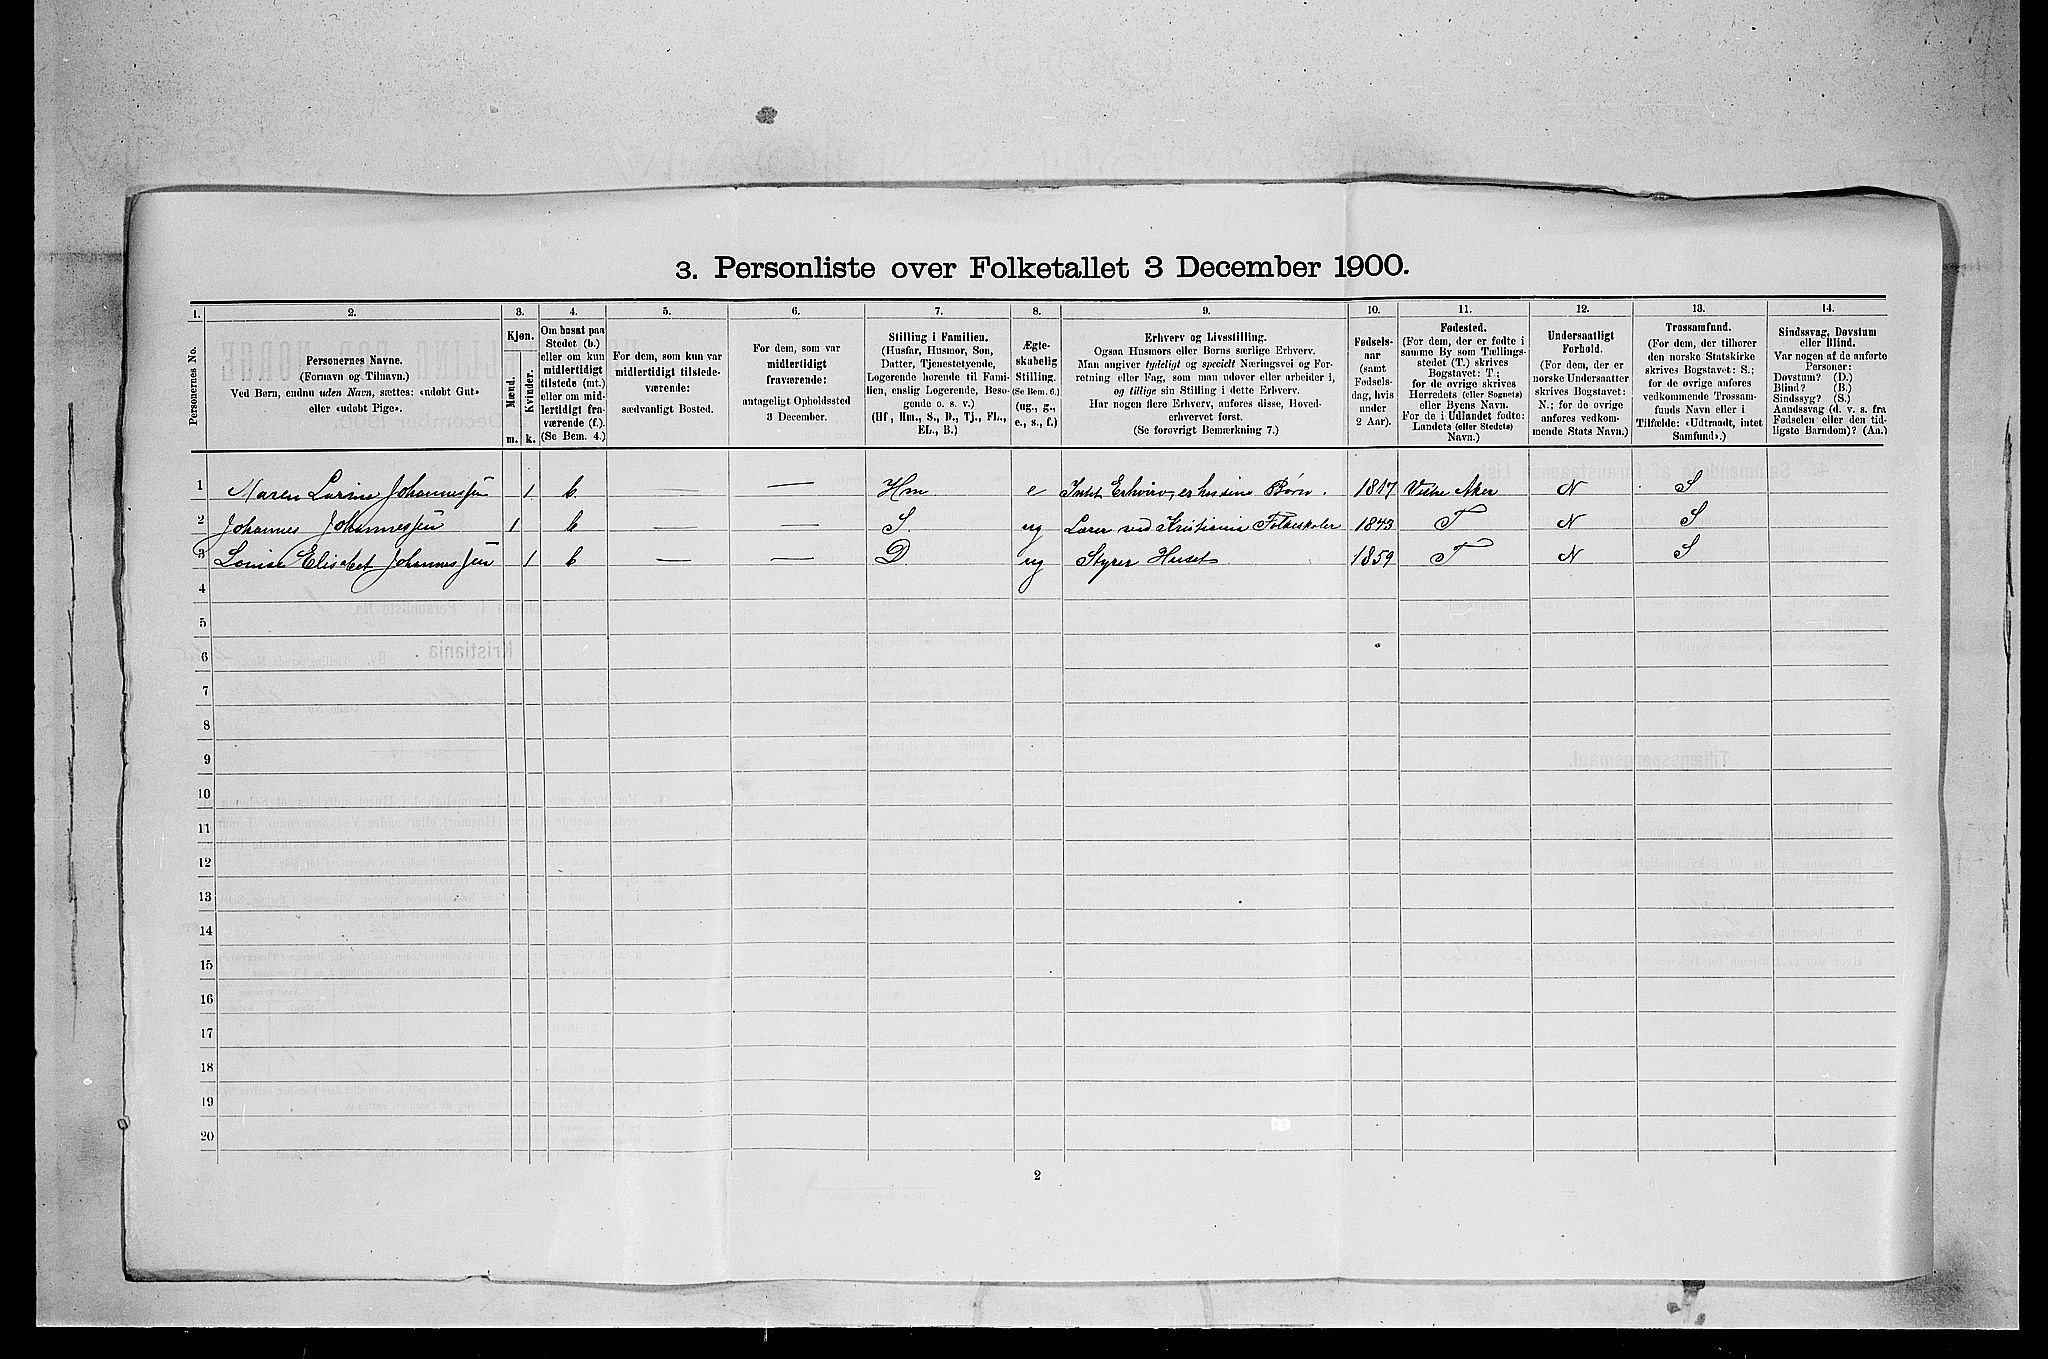 3. Personliste over Folketallet 3 December 1900.
1. 2. 3. 4. 5. 6. 7. 8. 9. 10. 11. 12. 13. 14.
Personernes No.
Personernes Navne.
(Fornavn og Tilnavn.)
Ved Børn, endnu uden Navn, sættes: «udøbt Gut»
eller «udøbt Pige».
Kjøn.
Mænd.
Kvinder.
m. k.
Om bosat paa
Stedet (b.)
eller om kun
midlertidigt
tilstede (mt.)
eller om mid-
lertidigt fra-
værende (f.).
(Se Bem. 4.)
For dem, som kun var
midlertidigt tilstede-
værende:
sædvanligt Bosted.
For dem, som var
midlertidigt
fraværende:
antageligt Opholdssted
3 December.
Stilling i Familien.
(Husfar, Husmor, Søn,
Datter, Tjenestetyende,
Logerende hørende til Fami-
lien, enslig Logerende, Besø-
gende o. s. v.)
(Hf, Hm., S., D., Tj., FL.,
EL., B.)
Ægte-
skabelig
Stilling.
(Se Bem. 6.)
(ug., g.,
e., s., f.)
Erhverv og Livsstilling.
Ogsaa Husmors eller Børns særlige Erhverv.
Man angiver tydeligt og specielt Næringsvei og For-
retning eller Fag, som man udøver eller arbeider i,
og tillige sin Stilling i dette Erhverv.
Har nogen flere Erhverv, anføres disse, Hoved-
erhvervet først.
(Se forøvrigt Bemærkning 7.)
Fødsels-
aar
(samt
Fødsels-
dag, hvis
under
2 Aar).
Fødested.
(For dem, der er fødte i
samme By som Tællings-
stedet (T.) skrives
Bogstavet: T.;
for de øvrige skrives
Herredets (eller Sognets)
eller Byens Navn.
For de i Udlandet fødte:
Landets (eller Stedets)
Navn.)
Undersaatligt
Forhold.
(For dem, der er
norske Undersaatter
skrives Bogstavet:
N.; for de øvrige
anføres vedkom-
mende Stats Navn.)
Trossamfund.
(For dem, der tilhører
den norske Statskirke
skrives Bogstavet: S.;
for de øvrige anføres
vedkommende Trossam-
funds Navn eller i
Tilfælde: «Udtraadt, intet
Samfund».)
Sindssvag, Døvstum
eller Blind.
Var nogen af de anførte
Personer:
Døvstum? (D.)
Blind? (B.)
Sindssyg? (S.)
Aandssvag (d. v. s. fra
Fødselen eller den tid-
ligste Barndom)? (Aa.)
1 Maren Larine Johannessen 1 b — — Hm e Intet Erhverv, er hos sine Børn. 1817 Vestre Aker N S
2 Johannes Johannessen 1 b — — S. ug Lærer ved Kristiania Folkeskoler 1843 T N S
3 Louise Elisabet Johannessen 1 b — — D ug Styrer Huset 1859 T N S
4
5
6
7
8
9
10
11
12
13
14
15
16
17
18
19
20
2